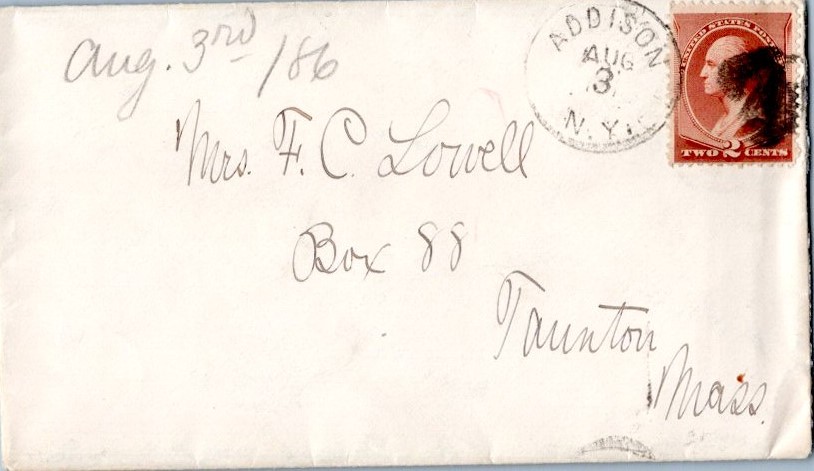 Aug. 3rd /86
ADDISON
AUG
3
N.Y.
UNITED STATES POST
TWO 2 CENTS
Mrs. F. C. Lowell
Box 88
Taunton
Mass.